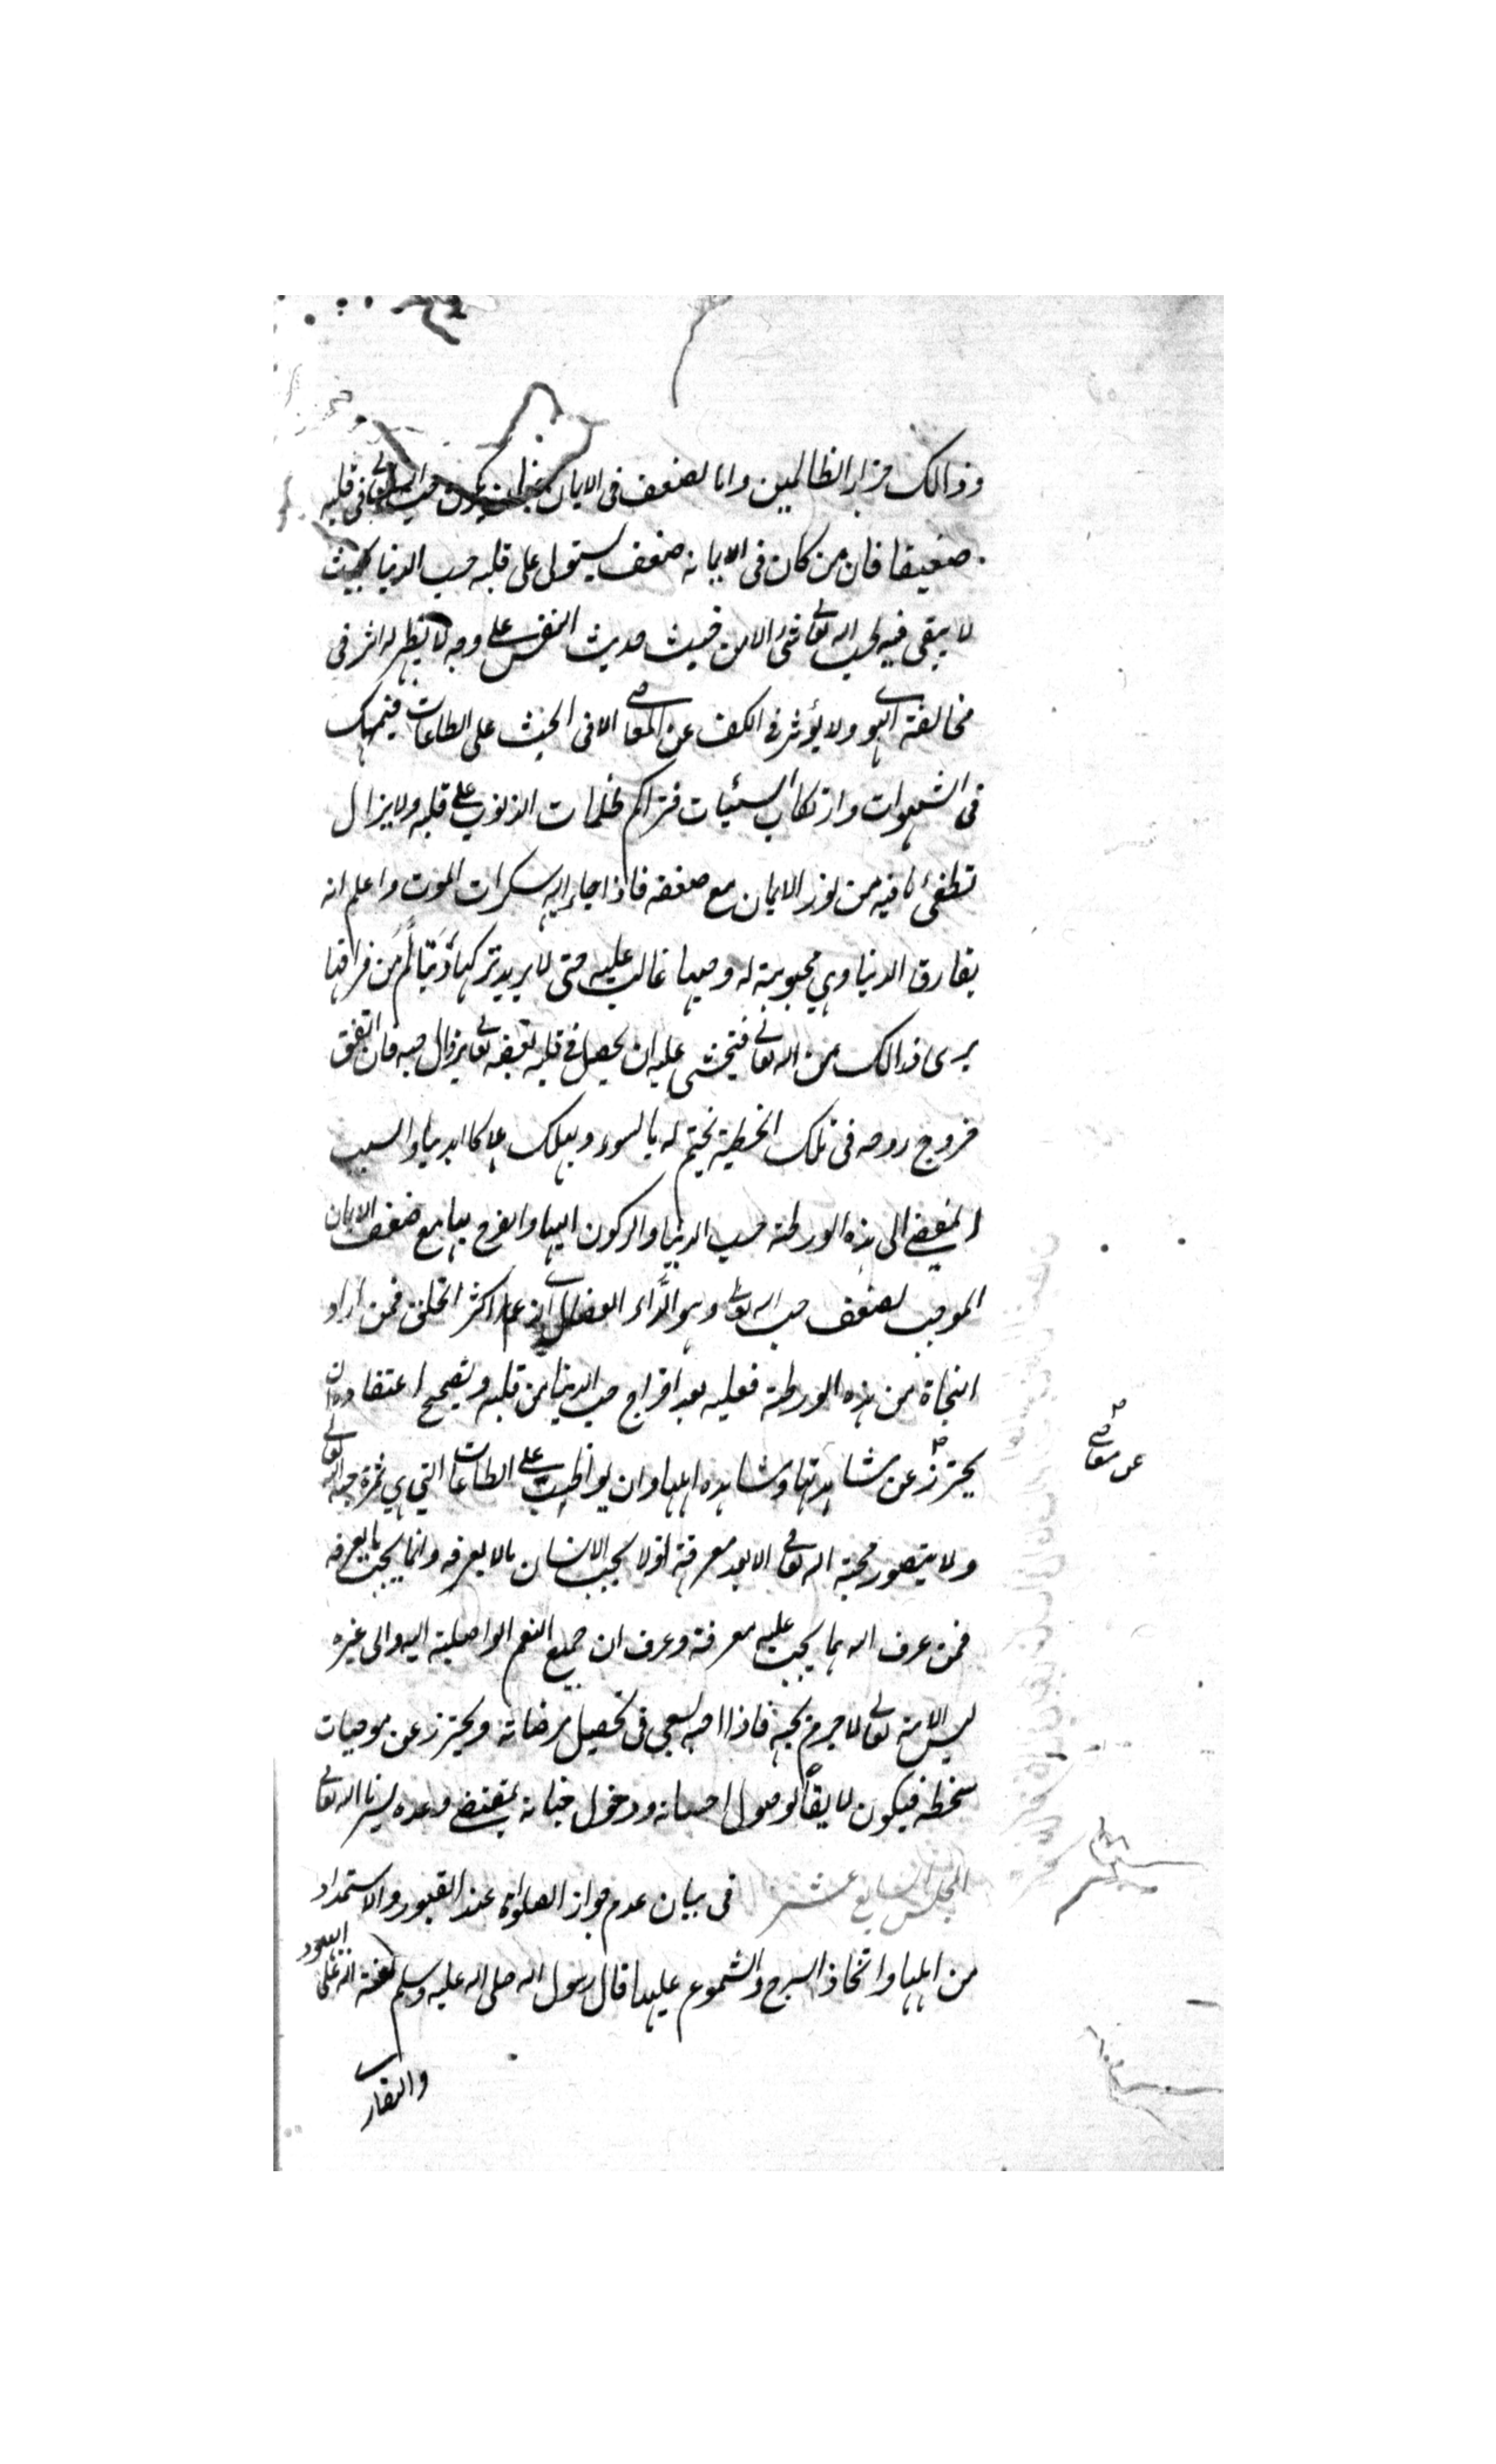 وذالك جزاء الظالمين واما لضعف فى الايمان بان يكون حب الله تعالى فى قلبه
ضعيفا فان من كان فى الايمانه ضعف يستولى على قلبه حب الدنيا بحيث
لا يبقى فيه لحب الله تعالى شئ الا من حيث حديث النفس على وجه لا يظهر له اثر فى
مخالفة الهوى ولا يؤثر فى الكف عن المعاصى الا فى الحث على الطاعات فينهمك
فى الشهوات وارتكاب السيئات فتراكم ظلمات الذنوب على قلبه ولا يزال
تطفئ ما فيه من نور الايمان مع ضعفه فاذا جاء اليه سكرات الموت واعلم انه
يفارق الدنيا وهي محبوبة له وحبها غالب عليه حتى لا يريد تركها ويتألم من فراقها
يرى ذالك من الله تعالى فيخشى عليه ان يحصل فى قلبه بغضه تعالى بزوال حبه فان اتفق
خروج روحه فى تلك الخطية يختم له بالسوء ويهلك هلاكا ابديا والسبب
المفضى الى هذه الورطة حب الدنيا والركون اليها والفرح بها مع ضعف الايمان
الموجب لضعف حب الله تعالى وهو الداء العضال الذى عم اكثر الخلق فمن اراد
النجاة من هذه الورطة فعليه بعد اخراج حب الدنيا من قلبه وتصحيح اعتقاده ان
يحترز عن مشاهدتها ومشاهده اهلها وان يواظب على الطاعات التي هي ثمرة محبة الله تعالى
عن معاصى
ولا يتصور محبة الله تعالى الا بعد معرفته اذ لا يحب الانسان مالا يعرفه وانما يحب ما يعرفه
فمن عرف الله بما يجب عليه معرفته وعرف ان جميع النعم الواصلية اليه والى غيره
ليس الا منه تعالى لا جرم يحبه فاذا احبه يسعى فى تحصيل مرضاته ويحترز عن موجبات
سخطه فيكون لايقا لوصول احسانه ودخول جنانه بمقتضى وعده يسرنا الله تعالى
المجلس السابع عشر فى بيان عدم جواز الصلوة عند القبور والاستمداد
من اهلها واتخاذ السرج والشموع عليها قال رسول الله صلى الله عليه وسلم لعنة الله على اليهود
والنصارى